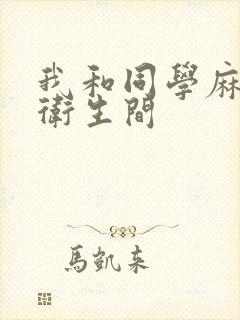 我和同學麻
衛生間
馬凱來